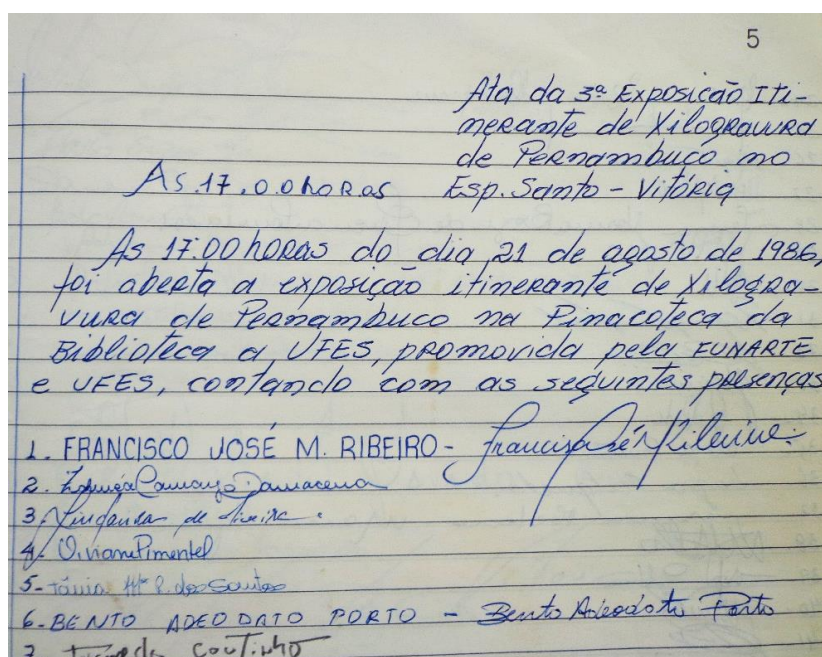 5
Ata da 3ª Exposição Iti-
nerante de Xilogravura
de Pernambuco no
As.17.0.0 horas Esp. Santo - Vitória
As 17:00 horas do dia 21 de agosto de 1986,
foi aberta a exposição itinerante de Xilogra-
vura de Pernambuco na Pinacoteca da
Biblioteca a UFES, promovida pela FUNARTE
e UFES, contando com as seguintes presenças
1. FRANCISCO JOSÉ M. RIBEIRO - Francisco José M Ribeiro
2. Camargo Damacena
3. de Oliveira
4. Viviane Pimentel
5- Tânia Mª P. dos Santos
6- BENTO ADEODATO PORTO - Bento Adeodato Porto
7. Coutinho